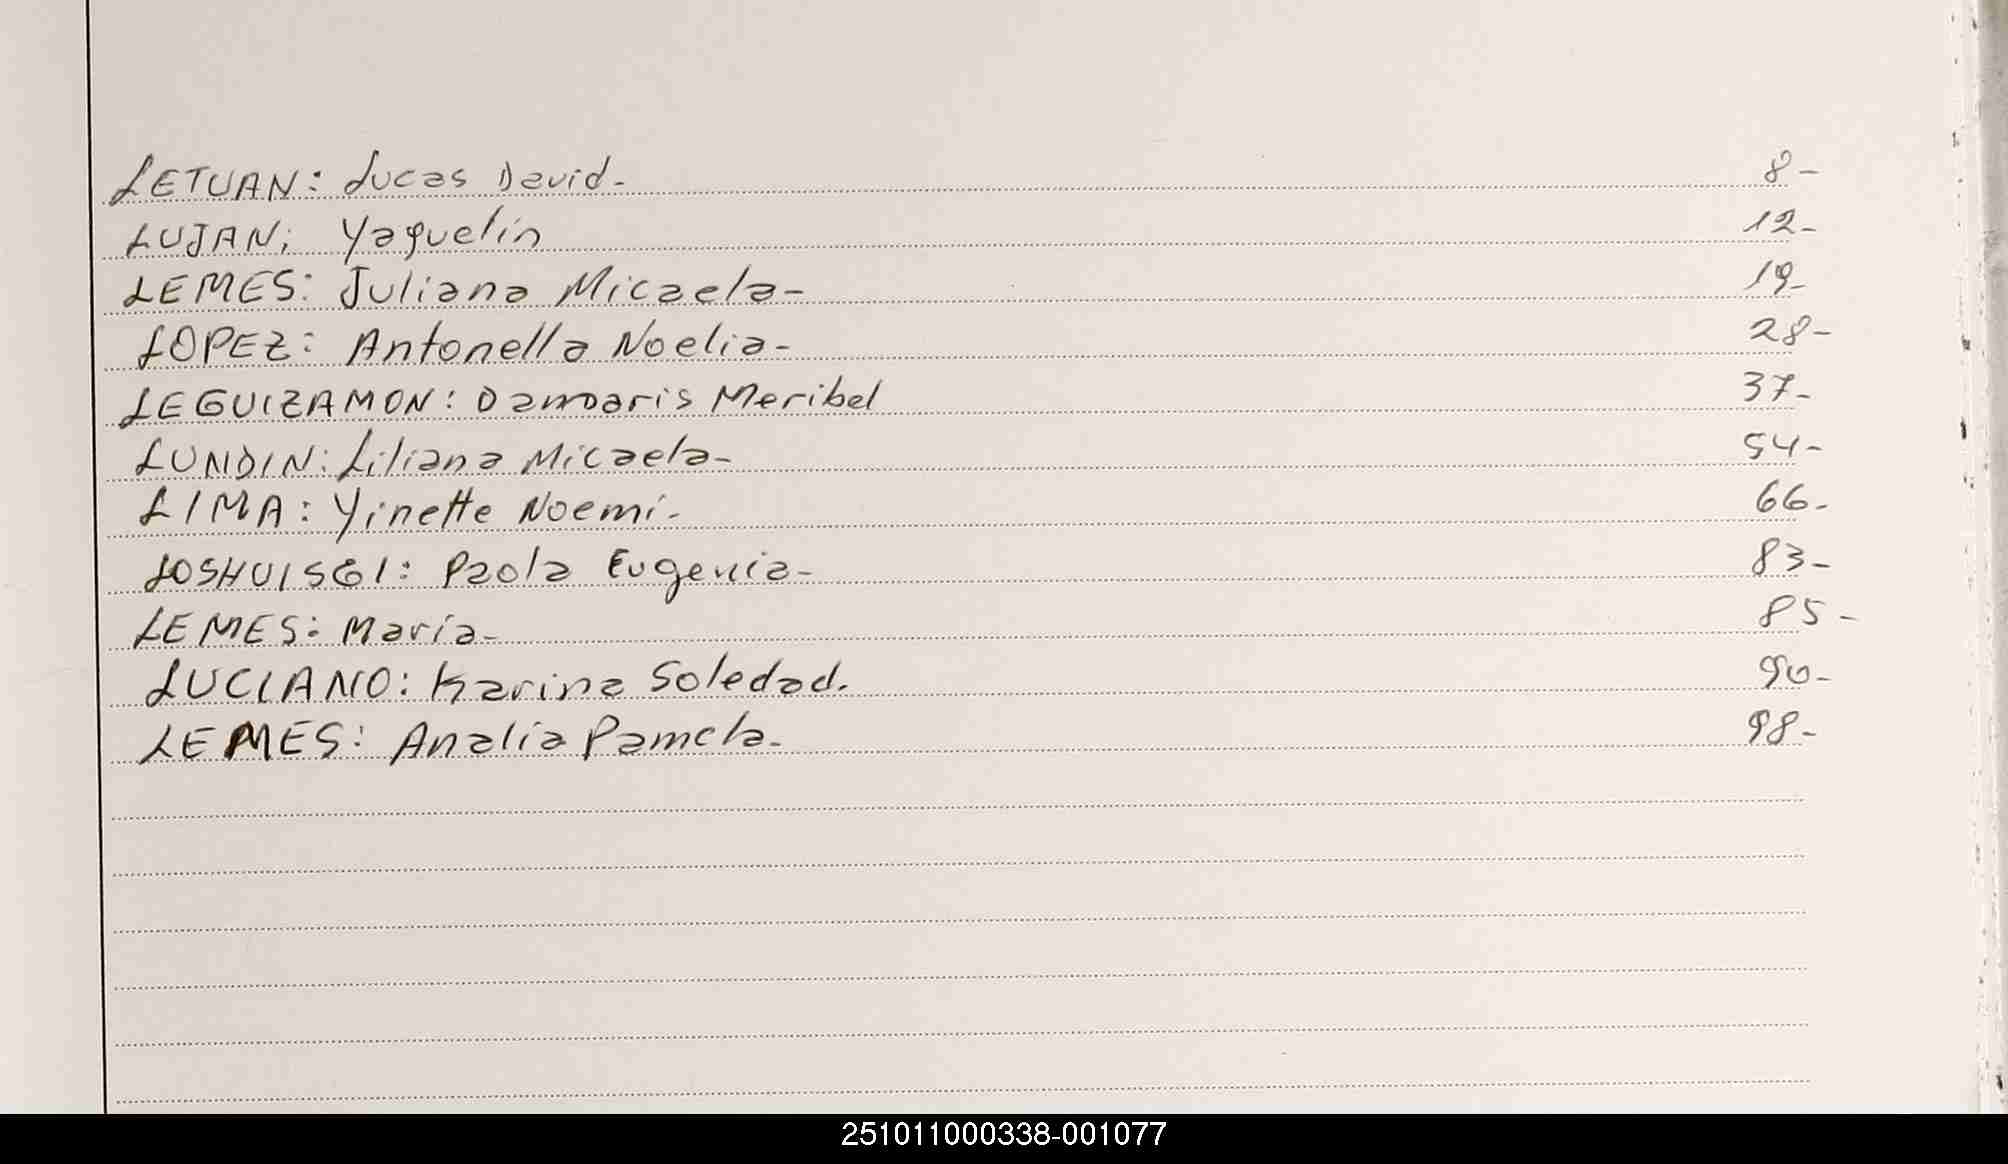 LETUAN: Lucas David- 8-
LUJAN: Yaquelín 12-
LEMES: Juliana Micaela- 19-
LOPEZ: Antonella Noelia- 28-
LEGUIZAMON: Damaris Meribel 37-
LUNDIN: Liliana Micaela- 54-
LIMA: Yinette Noemí- 66-
LOSHUISGI: Paola Eugenia- 83-
LEMES: María- 85-
LUCIANO: Karina Soledad. 90-
LEMES: Analía Pamela- 98-
251011000338-001077